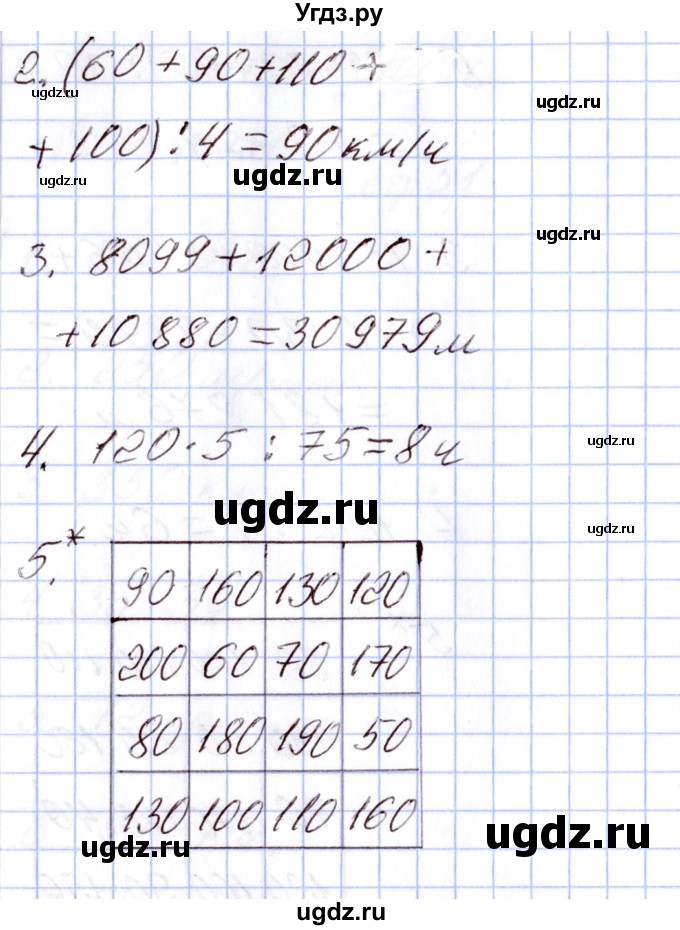 Угдз.ру
2. (60 + 90 + 110 +
ugdz.ru
ugdz.ru
+ 100) : 4 = 90 км/ч
ugdz.ru
ugdz.ru
3. 8099 + 12000 +
ugdz.ru
+ 10 880 = 30 979 м
4. 120 · 5 : 75 = 8 ч
ugdz.ru
ugdz.ru
ugdz.ru
5.*
90 160 130 120
200 60 70 170
80 180 190 50
130 100 110 160
ugdz.ru
ugdz.ru
ugdz.ru